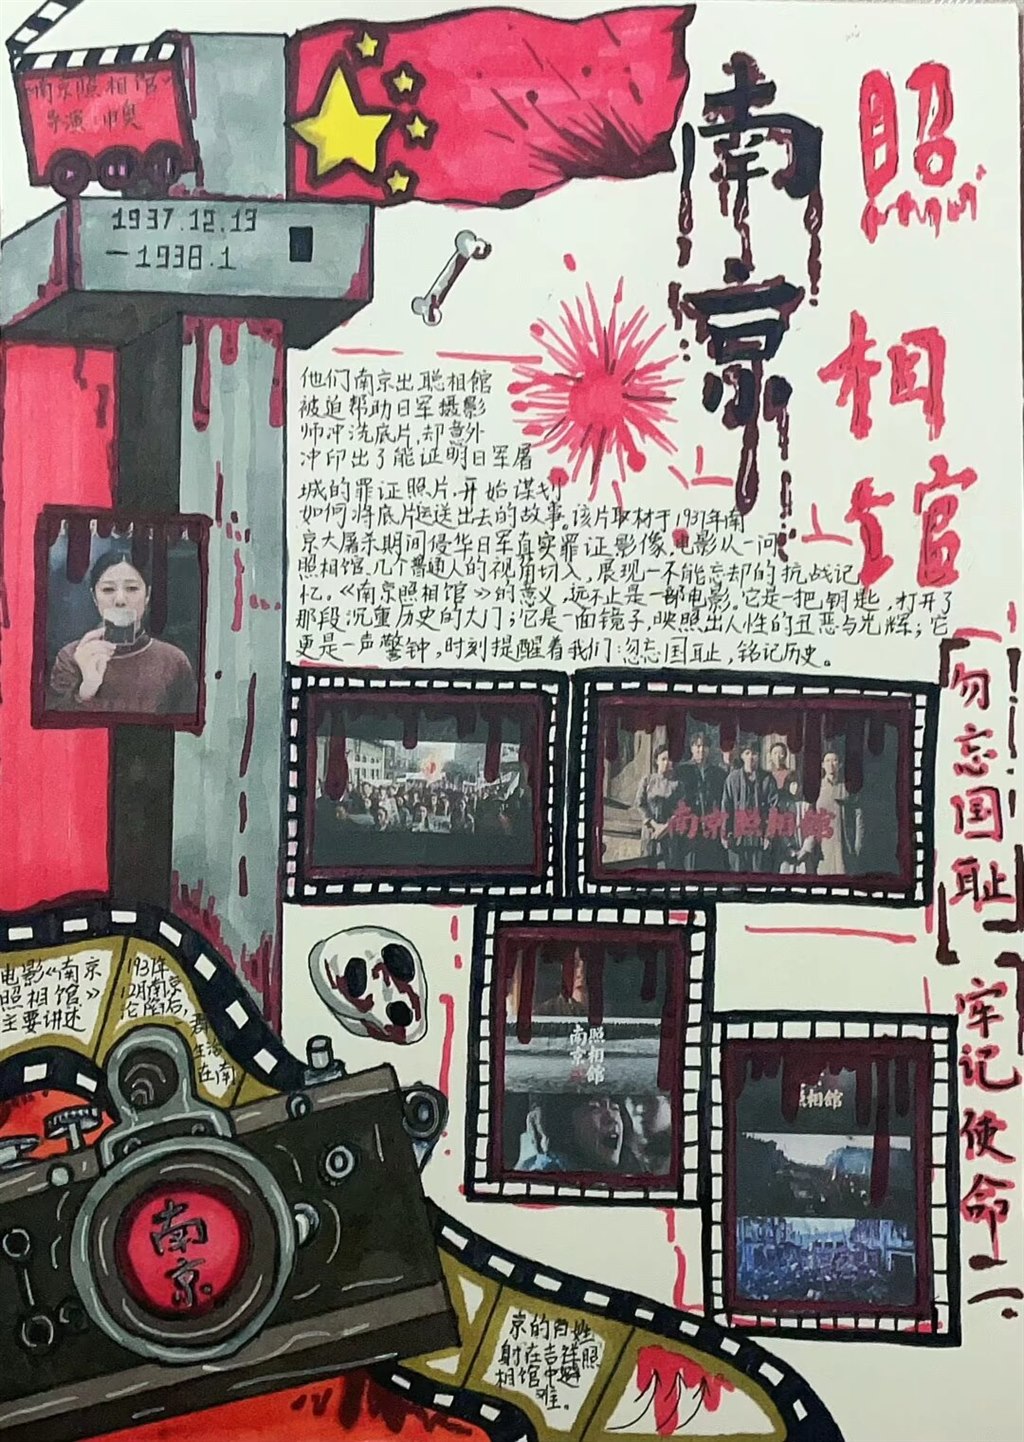 《南京照相馆》
导演：申奥
1937.12.13
－1938.1
南京
照相馆
他们南京出聪相館
被迫帮助日军摄影
师冲洗底片,却意外
冲印出了能证明日军屠
城的罪证照片,开始谋划
如何将底片运送出去的故事。该片取材于1937年南
京大屠杀期间侵华日军真实罪证影像,电影从一间
照相馆,几个普通人的视角切入,展现一不能忘却的抗战记
忆。《南京照相馆》的意义,远不止是一部电影。它是一把钥匙,打开了
那段沉重历史的大门;它是一面镜子,映照出人性的丑恶与光辉;它
更是一声警钟,时刻提醒着我们:勿忘国耻,铭记历史。
南京照相館
「勿忘国耻」
牢记使命
南京
照相館
照相館
电影《南京
照相馆》
主要讲述
1937年
12月南京
沦陷后,
一群
生活
在南
南京
京的百姓
身在吉祥照
相馆中避
难。